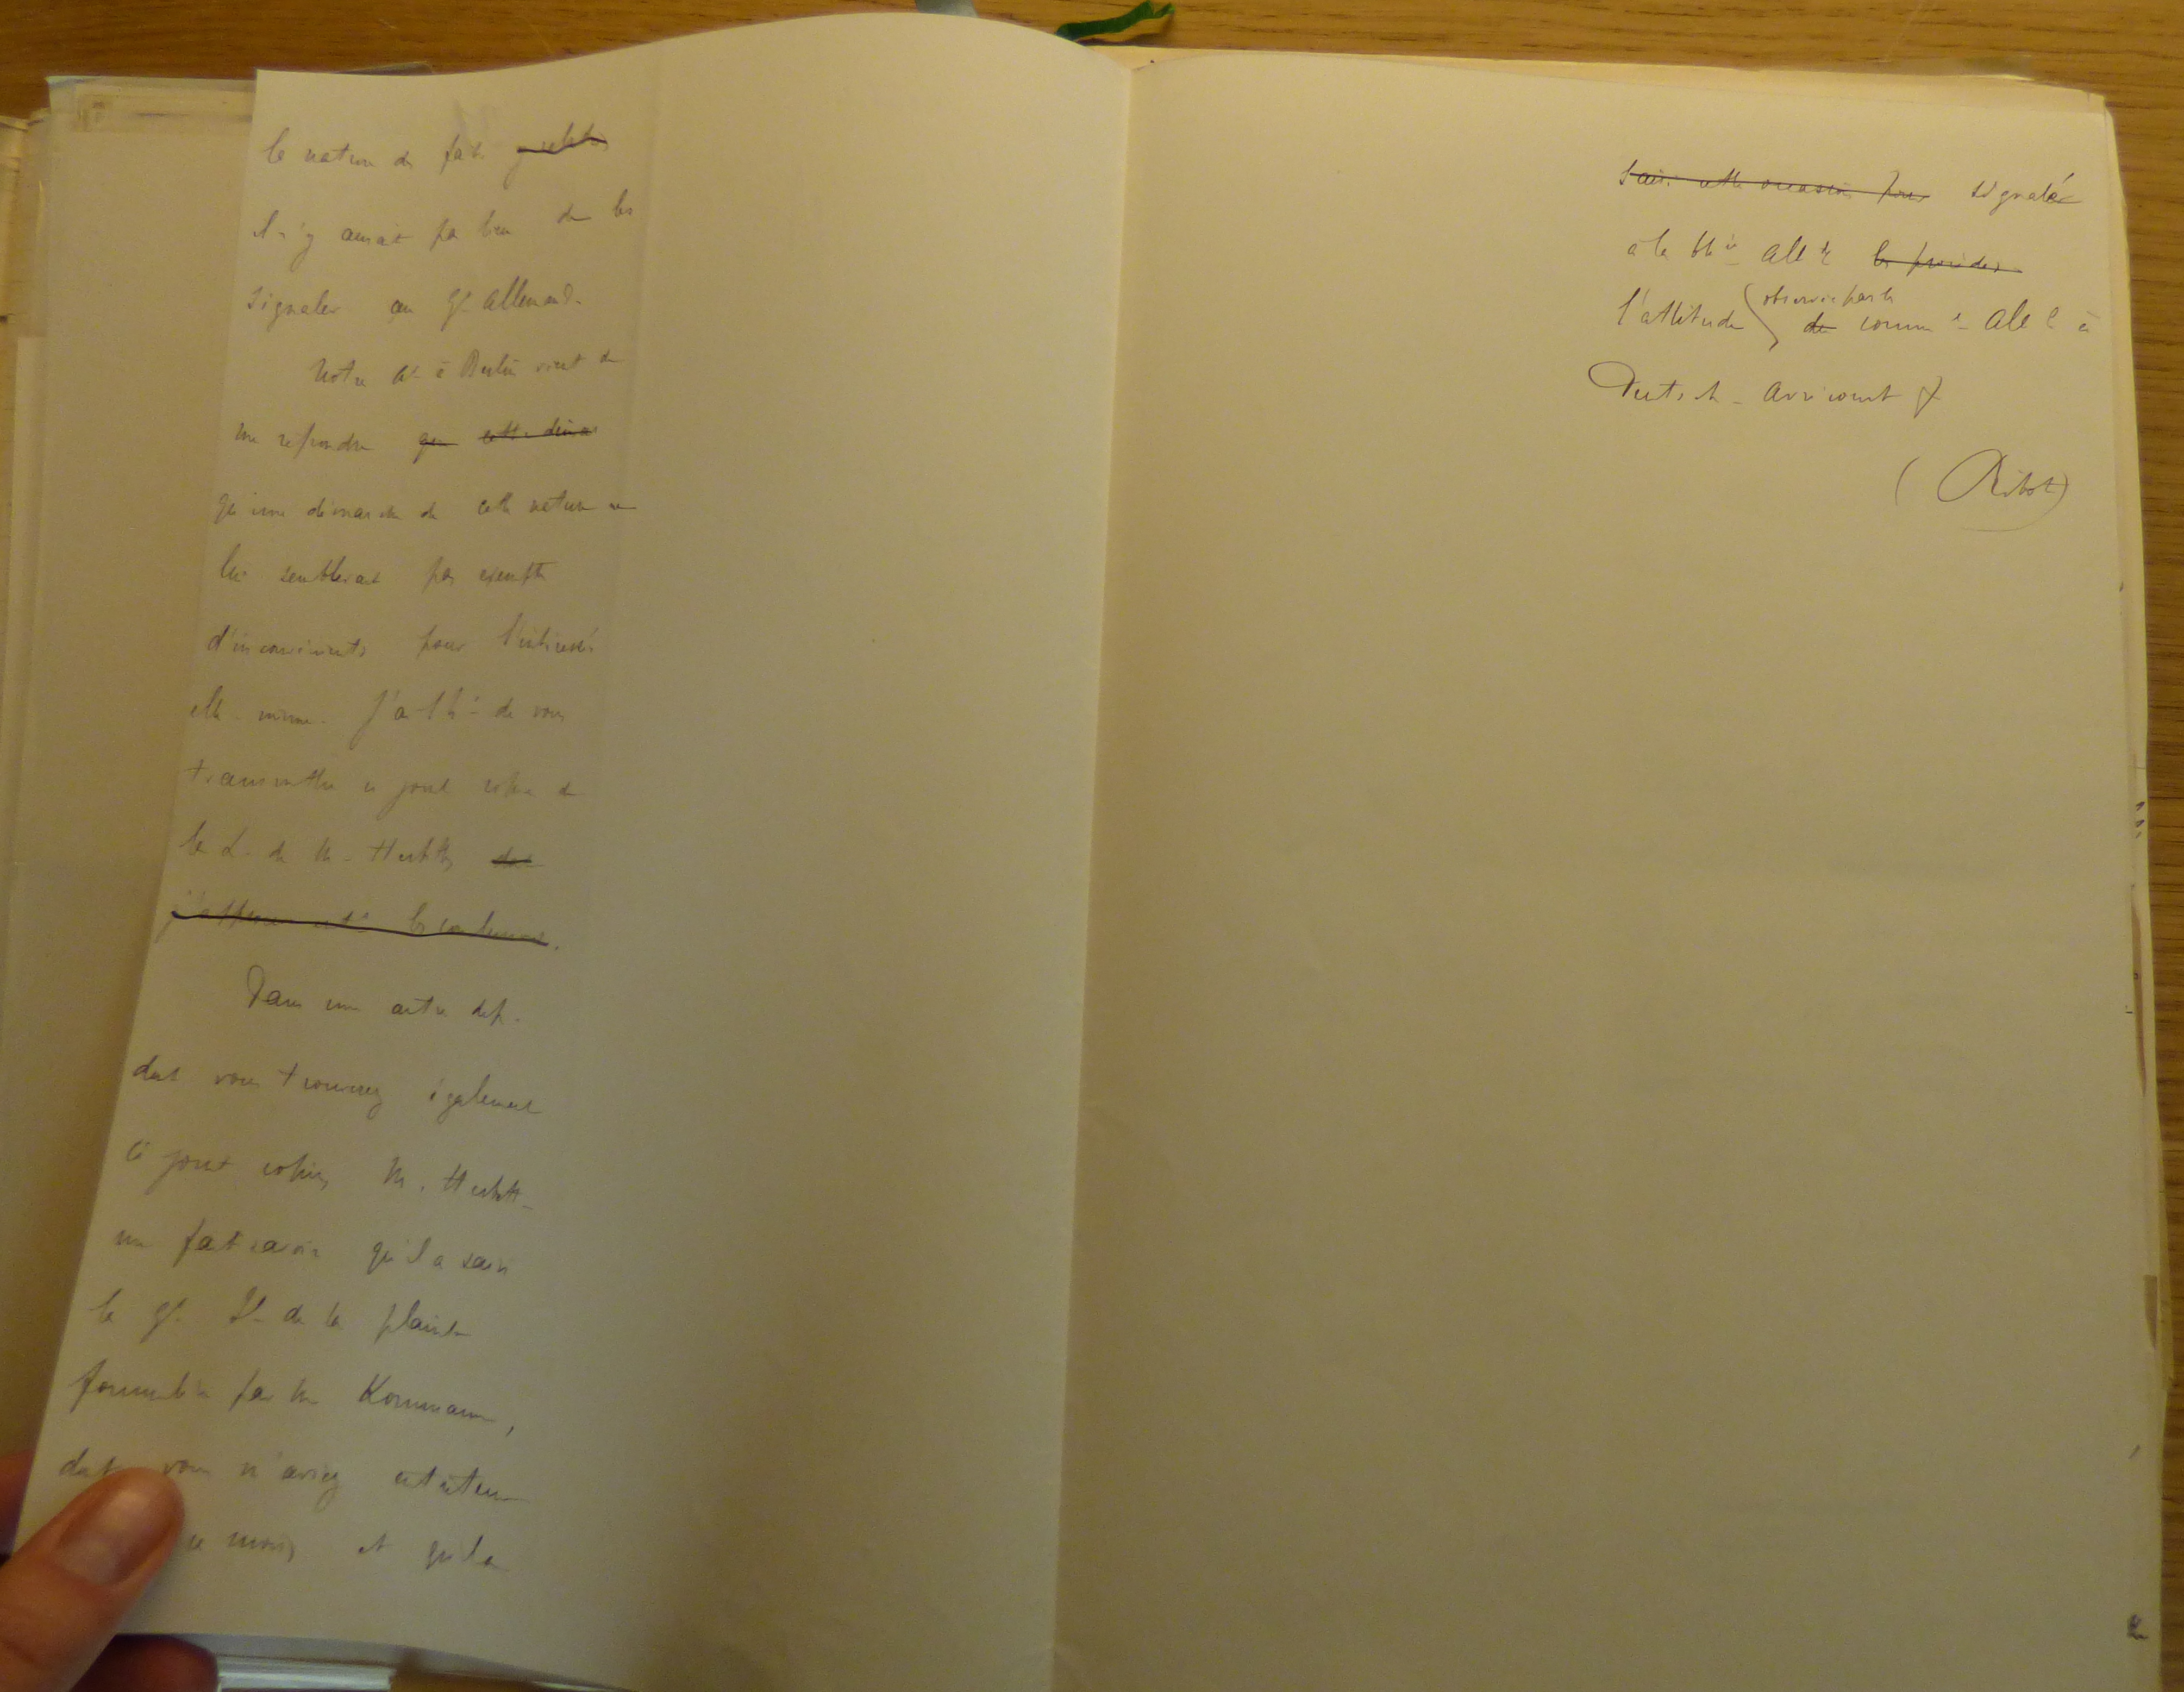 la nature des faits
il n'y aurait pas lieu de les
signaler au Gt Allemand.
Notre Ar à Berlin vient de
me répondre que cette démar
qu'une démarche de cette nature ne
lui semblerait pas exempte
d'inconvénients pour l'intéressée
elle-même. J'ai l'hr de vous
transmettre ci joint copie de
la L. de M. Herbette
Dans une autre dép.
dont vous trouverez également
ci joint copie, M. Herbette
me fait savoir qu'il a saisi
le Gt Il de la plainte
formulée par M Kornmann,
dont vous m'aviez entretenu
ce mois, et qu'il a
saisi cette occasion pour signaler
à la Alle les procédés
l'attitude observée par le
de comm re Alld à
Deutsch-Avricourt
(Ribot)